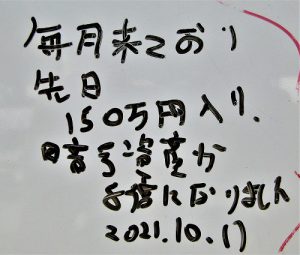 毎月来ており
先日
150万円入り.
暗号資産が
8倍になりました
2021.10.17